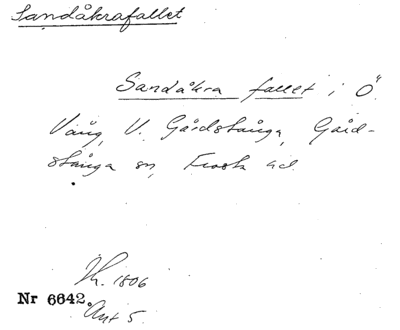 Sandåkrafallet
Sandåkra fallet i Ö.
Vång, V. Gårdstånga, Gård-
stånga sn, Frosta hd.
Sk. 1806
Nr 6642.
Akt 5.